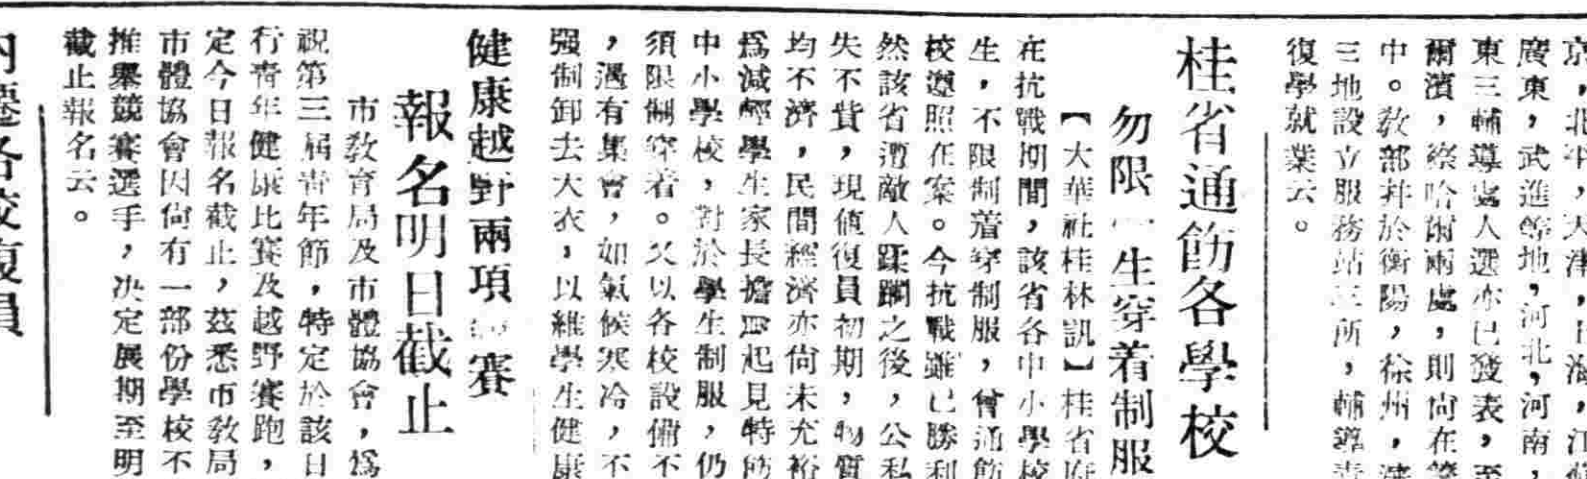 京，北平，天津，上海，江蘇
廣東，武進等地，河北，河南，
東三輔導處人選亦已發表，至
爾濱，察哈爾兩處，則尚在籌
中。敎部幷於衡陽，徐州，
三地設立服務站三所，輔導靑
復學就業云。
桂省通飭各學校
勿限 生穿着制服
【大華社桂林訊】桂省府
在抗戰期間，該省各中小學校
生，不限制着穿制服，曾通飭
校遵照在案。今抗戰雖已勝利
然該省遭敵人蹂躪之後，公私
失不貲，現値復員初期，物質
均不濟，民間經濟亦尙未充裕
爲減輕學生家長擔 起見特飭
中小學校，對於學生制服，仍
須限制穿着。又以各校設備不
，遇有集會，如氣候寒冷，不
强制卸去大衣，以維學生健康
健康越野兩項 賽
報名明日截止
市敎育局及市體協會，爲
祝第三屆靑年節，特定於該日
行靑年健康比賽及越野賽跑，
定今日報名截止，茲悉市敎局
市體協會因尙有一部份學校不
推舉競賽選手，决定展期至明
截止報名云。
內遷各校復員